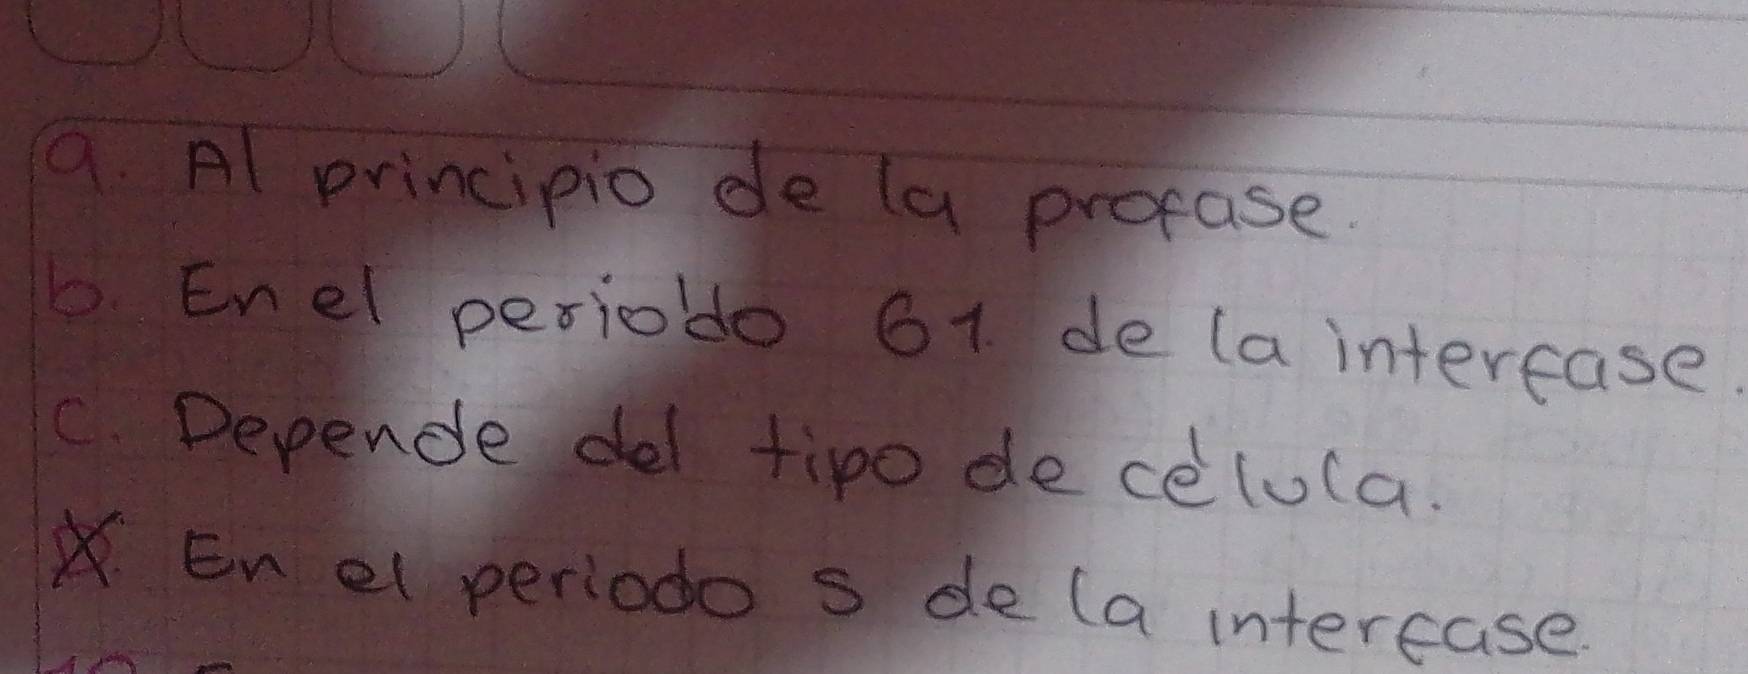 a. Al principio de la profase.
b. En el periodo G1 de la interfase.
c. Depende del tipo de célula.
En el periodo s de la interfase.